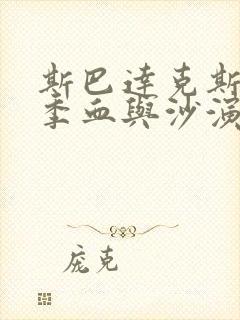 斯巴達克斯
季血與沙演
庞克